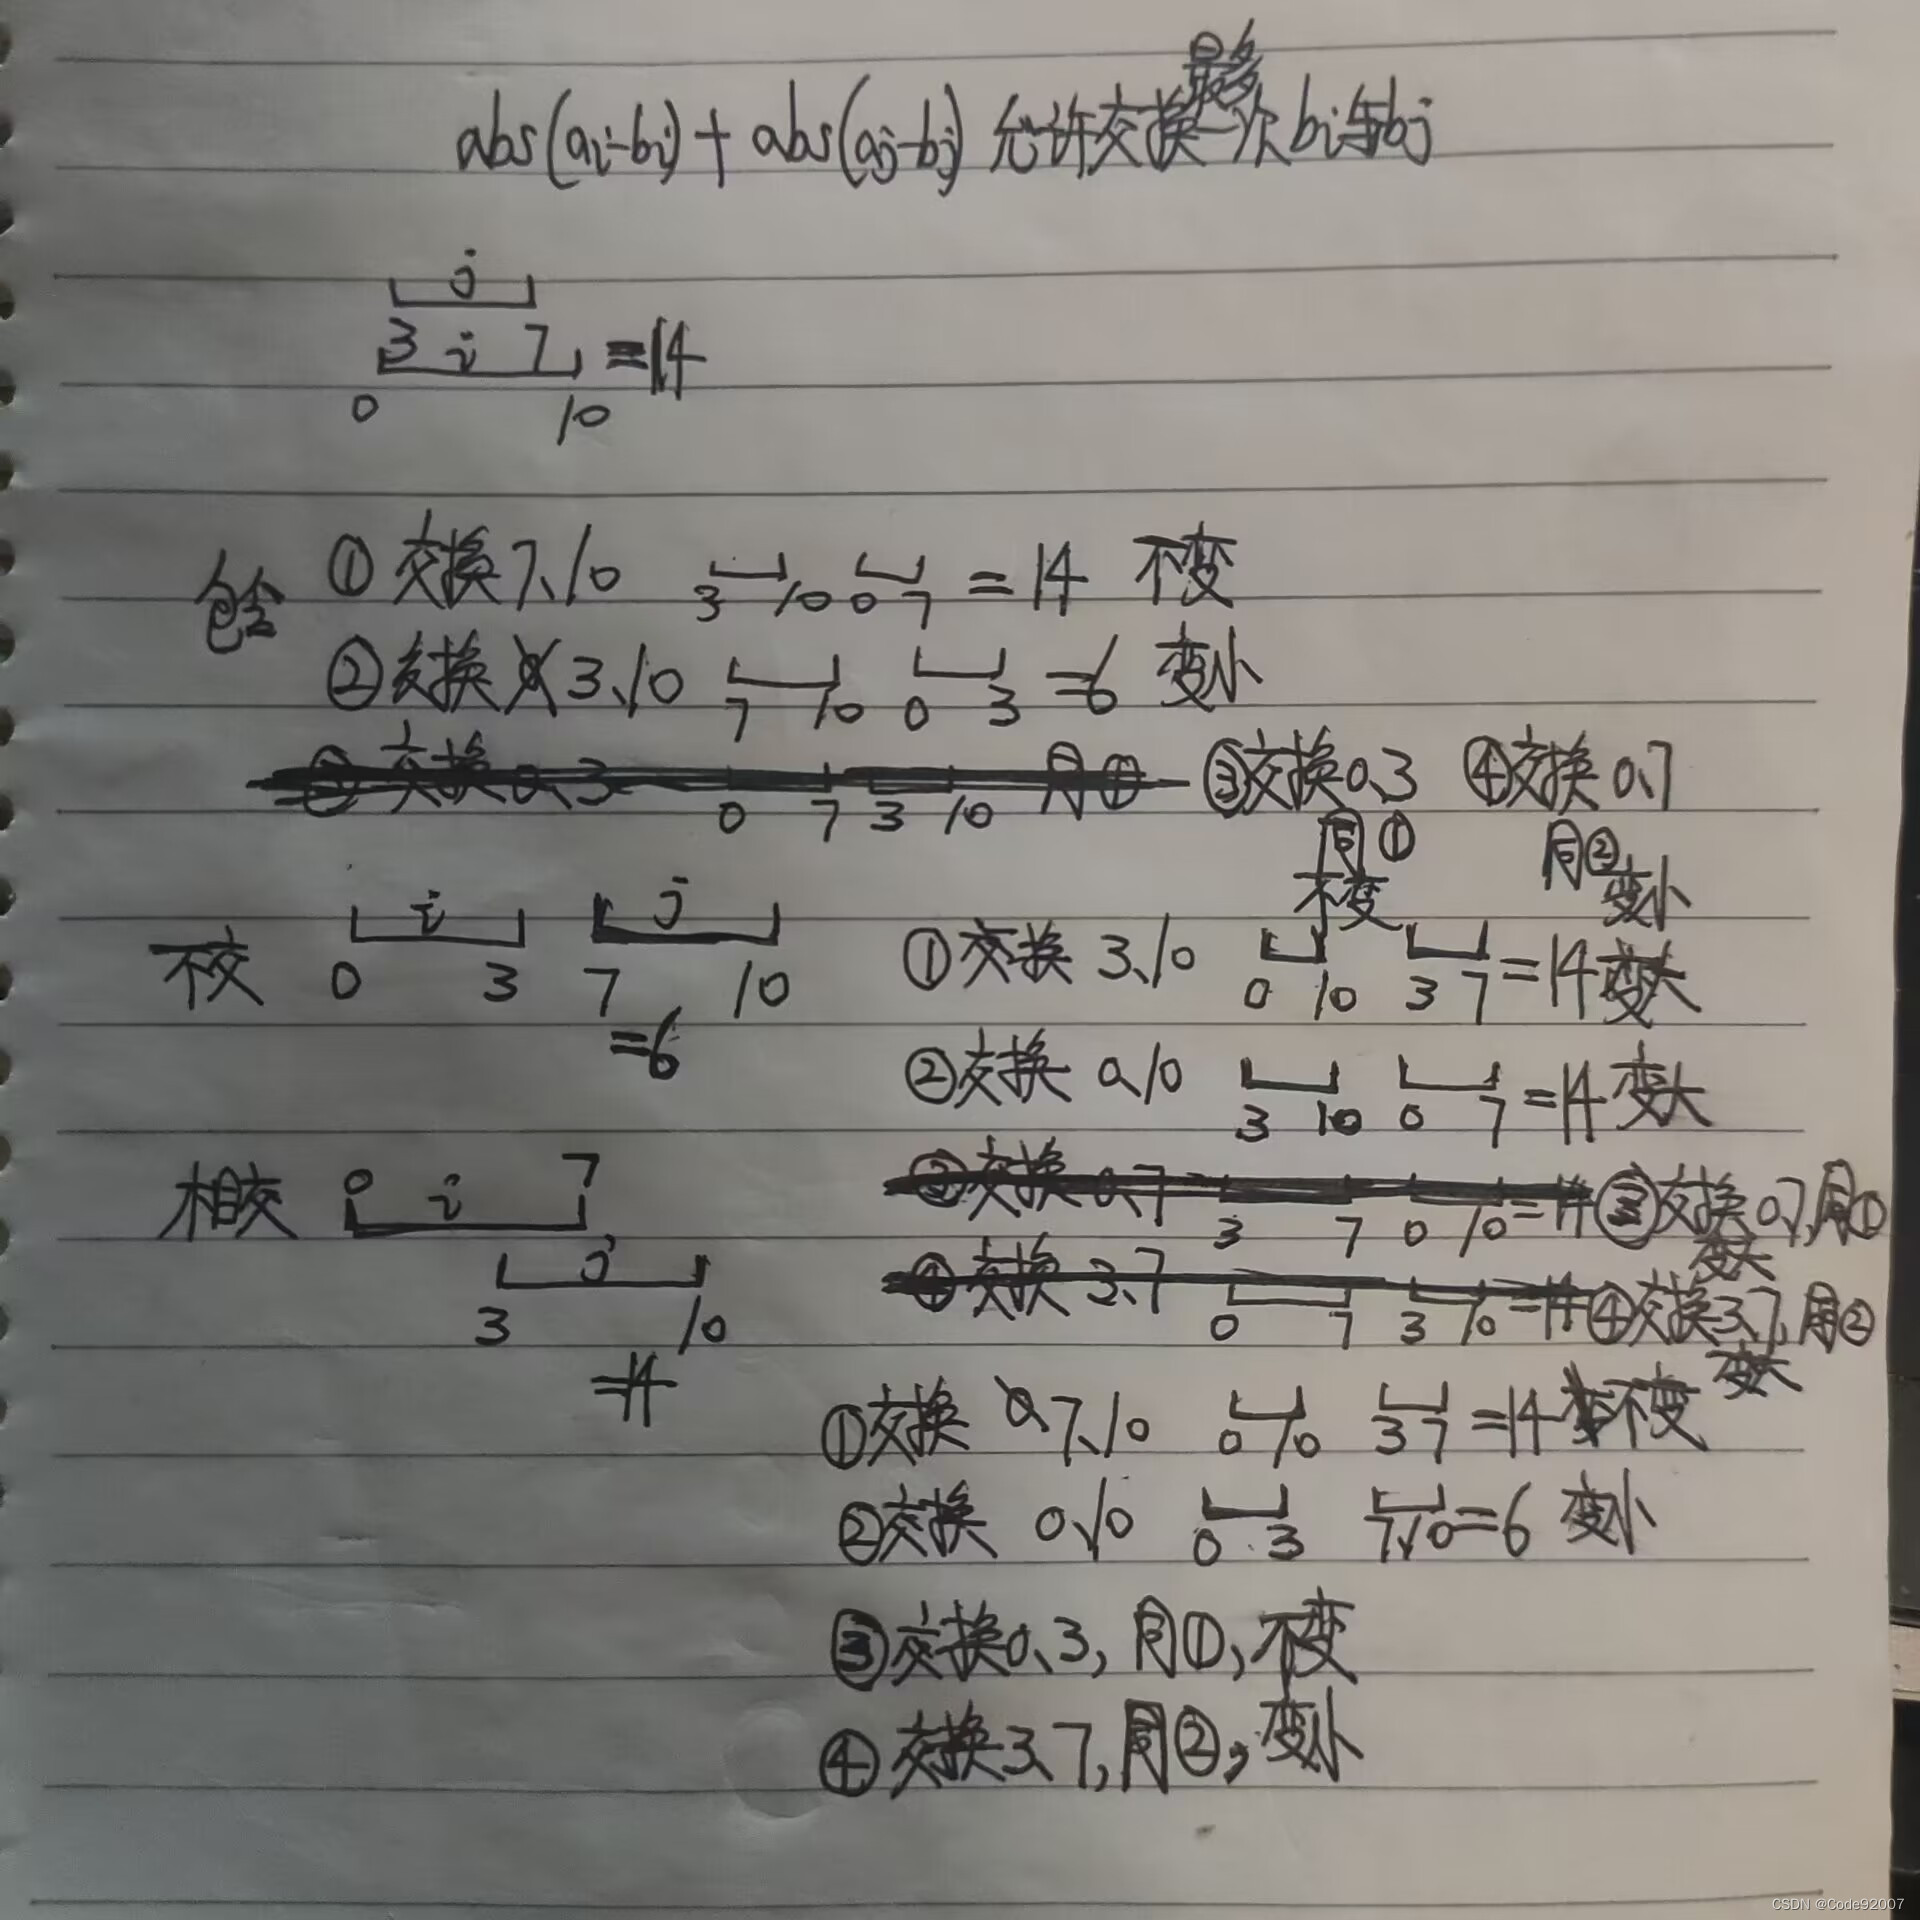 最多
abs(ai-bi)+abs(aj-bj) 允许交换一次bi与bj
j
3 i 7 =14
0 10
包含 ①交换7、10 3 10 0 7 =14 不变
②交换 3、10 7 10 0 3 =6 变小
②交换0、3 0 7 3 10 同① ③交换0、3 ④交换0、7
同① 同②
不变 变小
不交 i j ①交换 3、10 0 10 3 7 =14变大
0 3 7 10
=6
②交换 0、10 3 10 0 7 =14变大
相交 0 i 7 ③交换0、7 3 7 0 10 =14 ③交换0、7,同①
变大
j ④交换3、7 0 7 3 10 =14 ④交换3、7,同②
变大
3 10
=14
①交换 7、10 0 10 3 7 =14 不变
②交换 0、10 0 3 7、10=6 变小
③交换0、3,同①,不变
④交换3、7,同②,变小
CSDN @Code92007